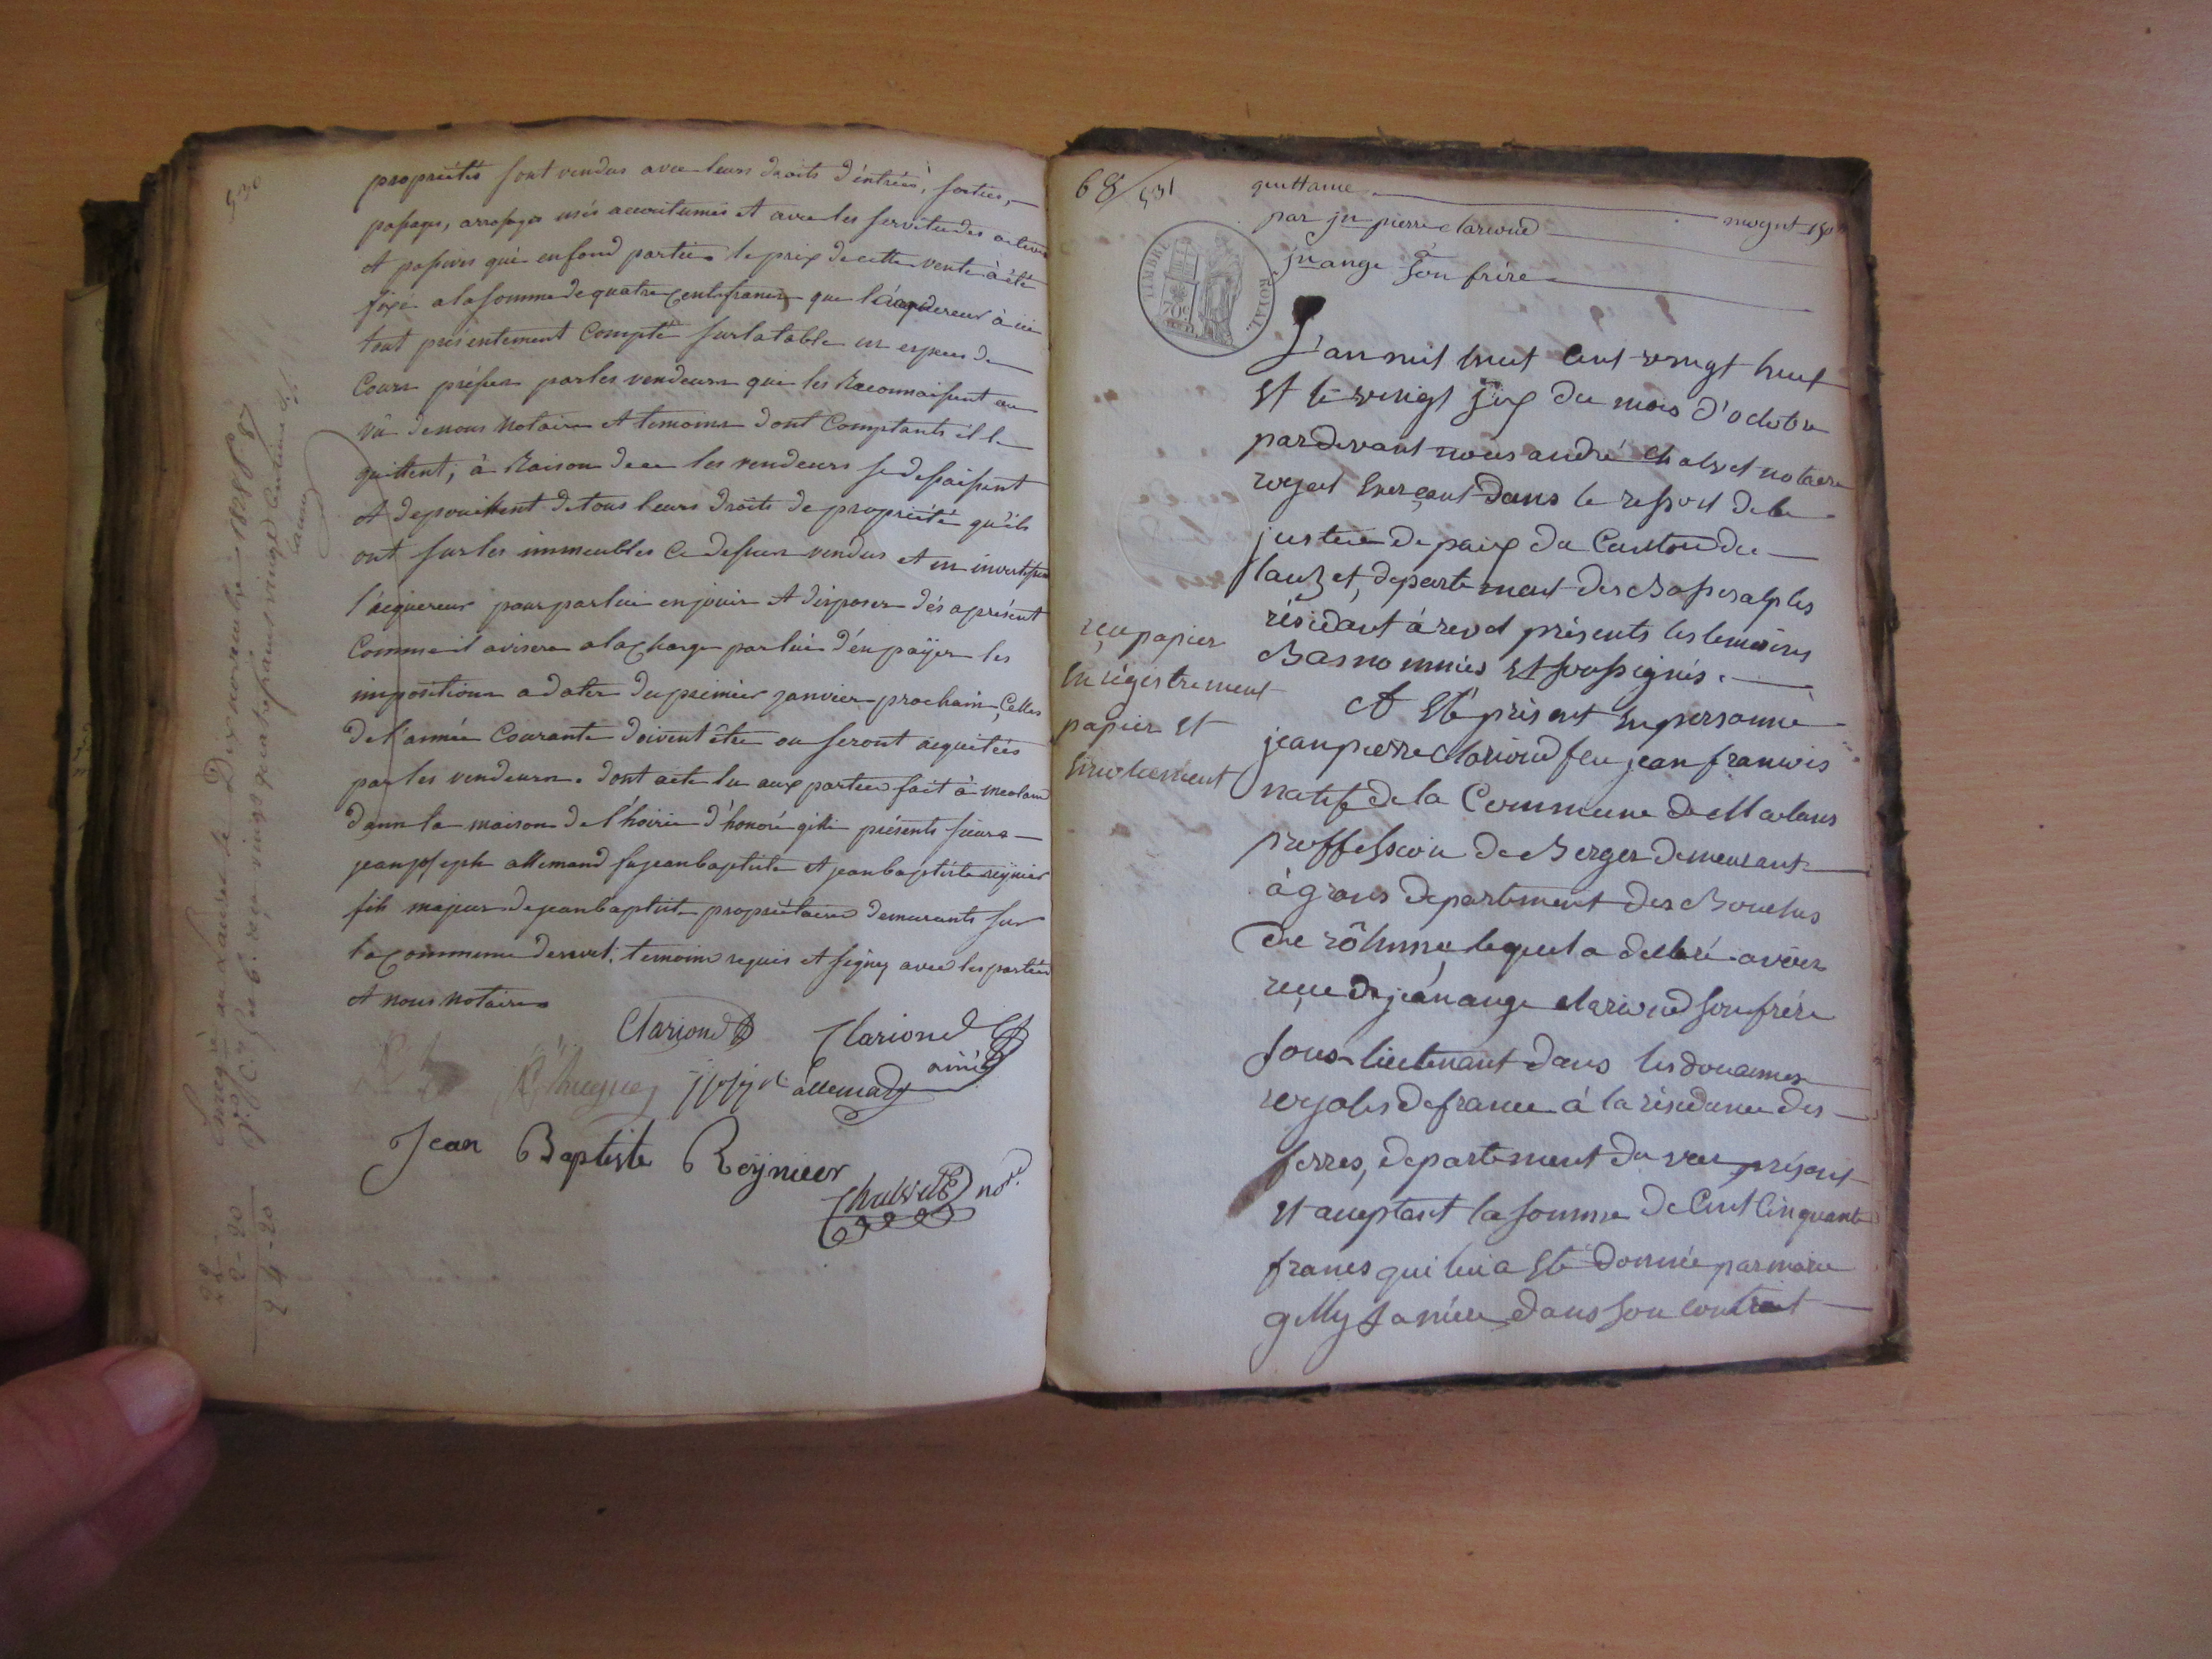 530
propriétés sont vendus avec leurs droits d'éntrées, sorties,
passages, arrosages usés accoutumés et avec les servitudes actives
et passives qui en font partie. le prix de cette vente à été
fixé a la somme de quatre cents francs que l'acquereur à ici
tout présentement compté sur la table en espèces de
cours préfix par les vendeurs qui les Reconnaissent au
vû de nous notaire et temoins dont comptants il le
quittent, à Raison de ce les vendeurs se dessaisent
et depouillent de tous leurs droits de propriété qu'ils
ont sur les immeubles ci dessus vendus et en investissent
l'acquereur pour par lui en jouir et disposer dès aprésent
comme il avisera a la charge par lui d'én payer les
impositions a dater du premier janvier prochain, celles
de l'année courante doivent être ou seront acquitées
par les vendeurs. dont acte lu aux parties fait à meolans
dans la maison de l'hoirie d'honoré gilli présents sieurs
jean joseph allemand fu jean baptiste et jean baptiste reynier
fils majeur de jean baptiste propriétaires demeurants sur
la commune de revel. temoins requis et signez avec les parties
et nous notaire
Clariond Clariond
ainé
joseph allemand
Jean Baptiste Reynier
Chalvet nore.
Enregistré au Lauzet le Dix novembre 1828 fo 87
vo C. 7 et 6. reçu vingt quatre francs vingt centimes
22 -
2 - 20
24 - 20
68/531
quittance
par jn pierre clariond
moynt 150
à
jn ange son frère
TIMBRE ROYAL.
70c
L'an mil huit cent vingt huit
et le vingt six du mois d'octobre
pardevant nous andré chalvet notaire
royal exerçant dans le ressort de la
justice de paix du Canton du
lauzet, departement des Basses alpes
résidant à revel présents les temoins
Bas nommés et soussignés.
A été présent en personne
jean pierre clariond feu jean francois
natif de la Commune de Méolans
proffession de Berger demeurant
à grans departement des Bouches
du rôhnne, lequel a déclaré avoir
reçu de jean ange clariond son frère
sous-lieutenant dans les douannes
royales de france à la résidence des
ferres, departement du var présent
et acceptant la somme de Cent Cinquante
francs qui lui a été donnée par marie
gilly sa mère dans son contrat
reçu papier
enrégistrement
papier et
émolument